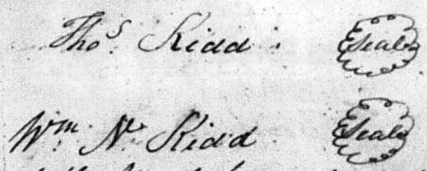 Thos Kidd Seal
Wm N Kidd Seal